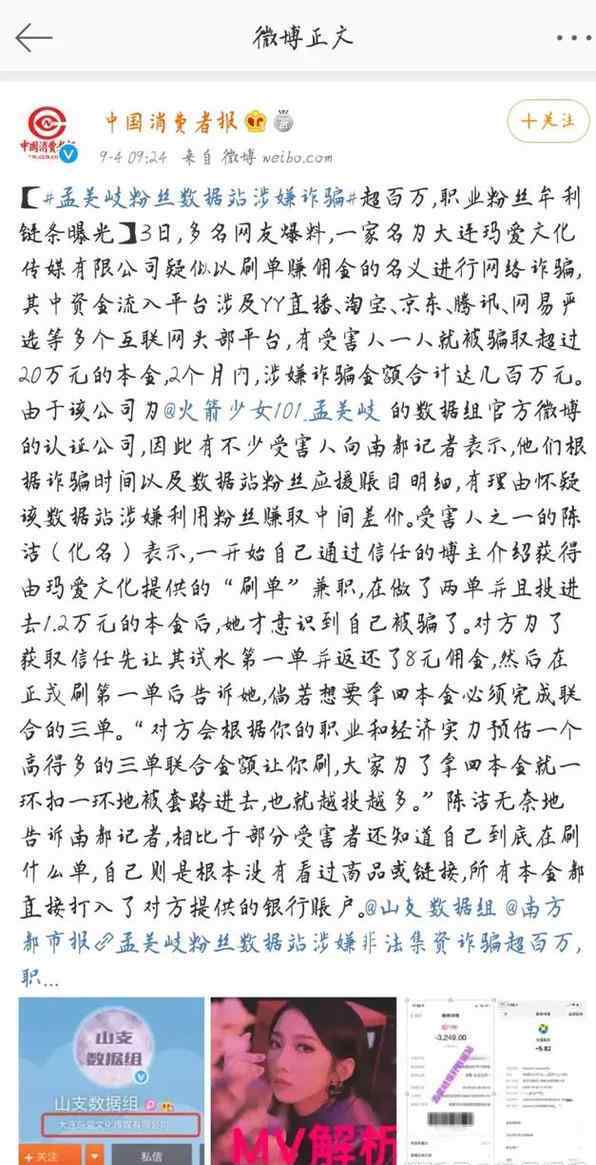 微博正文
中国消费者报
+关注
中国消费者报
9-4 09:24 来自 微博 weibo.com
【#孟美岐粉丝数据站涉嫌诈骗#超百万,职业粉丝牟利
链条曝光】3日,多名网友爆料,一家名为大连玛爱文化
传媒有限公司疑似以刷单赚佣金的名义进行网络诈骗,
其中资金流入平台涉及YY直播、淘宝、京东、腾讯、网易严
选等多个互联网头部平台,有受害人一人就被骗取超过
20万元的本金,2个月内,涉嫌诈骗金额合计达几百万元。
由于该公司为@火箭少女101_孟美岐 的数据组官方微博
的认证公司,因此有不少受害人向南都记者表示,他们根
据诈骗时间以及数据站粉丝应援账目明细,有理由怀疑
该数据站涉嫌利用粉丝赚取中间差价。受害人之一的陈
洁（化名）表示,一开始自己通过信任的博主介绍获得
由玛爱文化提供的“刷单”兼职,在做了两单并且投进
去1.2万元的本金后,她才意识到自己被骗了。对方为了
获取信任先让其试水第一单并返还了8元佣金,然后在
正式刷第一单后告诉她,倘若想要拿回本金必须完成联
合的三单。“对方会根据你的职业和经济实力预估一个
高得多的三单联合金额让你刷,大家为了拿回本金就一
环扣一环地被套路进去,也就越投越多。”陈洁无奈地
告诉南都记者,相比于部分受害者还知道自己到底在刷
什么单,自己则是根本没有看过商品或链接,所有本金都
直接打入了对方提供的银行账户。@山支数据组 @南方
都市报 孟美岐粉丝数据站涉嫌非法集资诈骗超百万,
职...
山支
数据组
山支数据组
大连玛爱文化传媒有限公司
+关注
私信
MV解析
-3,249.00
-5.82